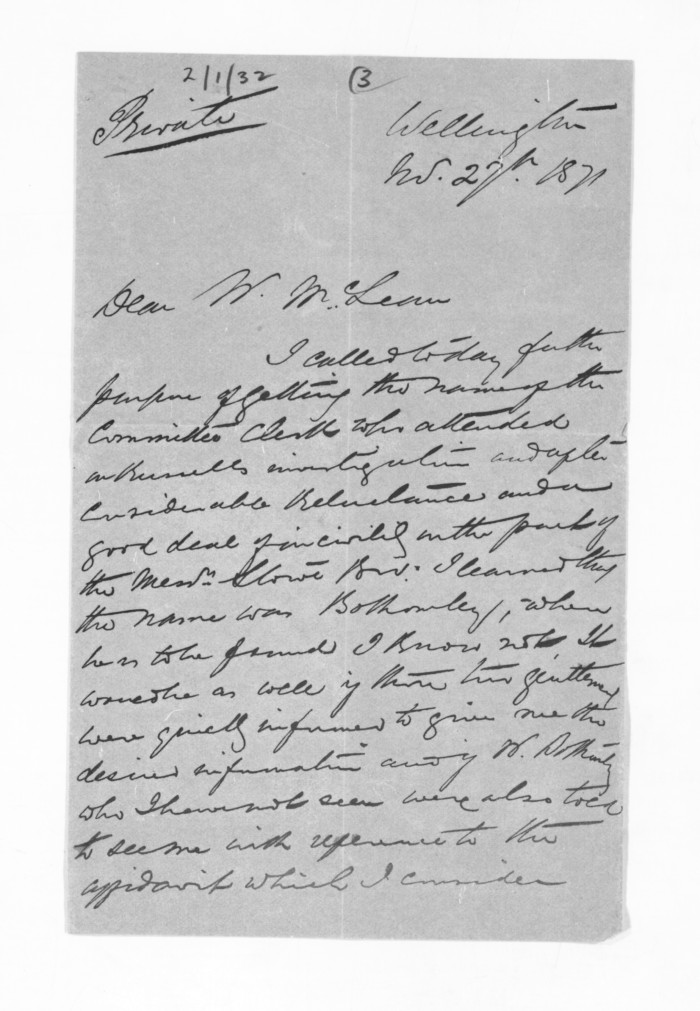 2/1/32 3
Private
Wellington
Nov. 27th 1871
Dear W. McLean
I called to day for the
purpose of getting the name of the
Committee Clerk who attended
on Russells investigation and after
considerable reluctance and a
good deal of incivility on the part of
the Messrs Stowe Bros. I learned that
the name was Bothamley, where
he is to be found I know not. It
would be as well if these two gentlemen
were quietly informed to give me the
desired information and if W. Bothamley
who I have not seen were also told
to see me with reference to the
affidavit which I consider